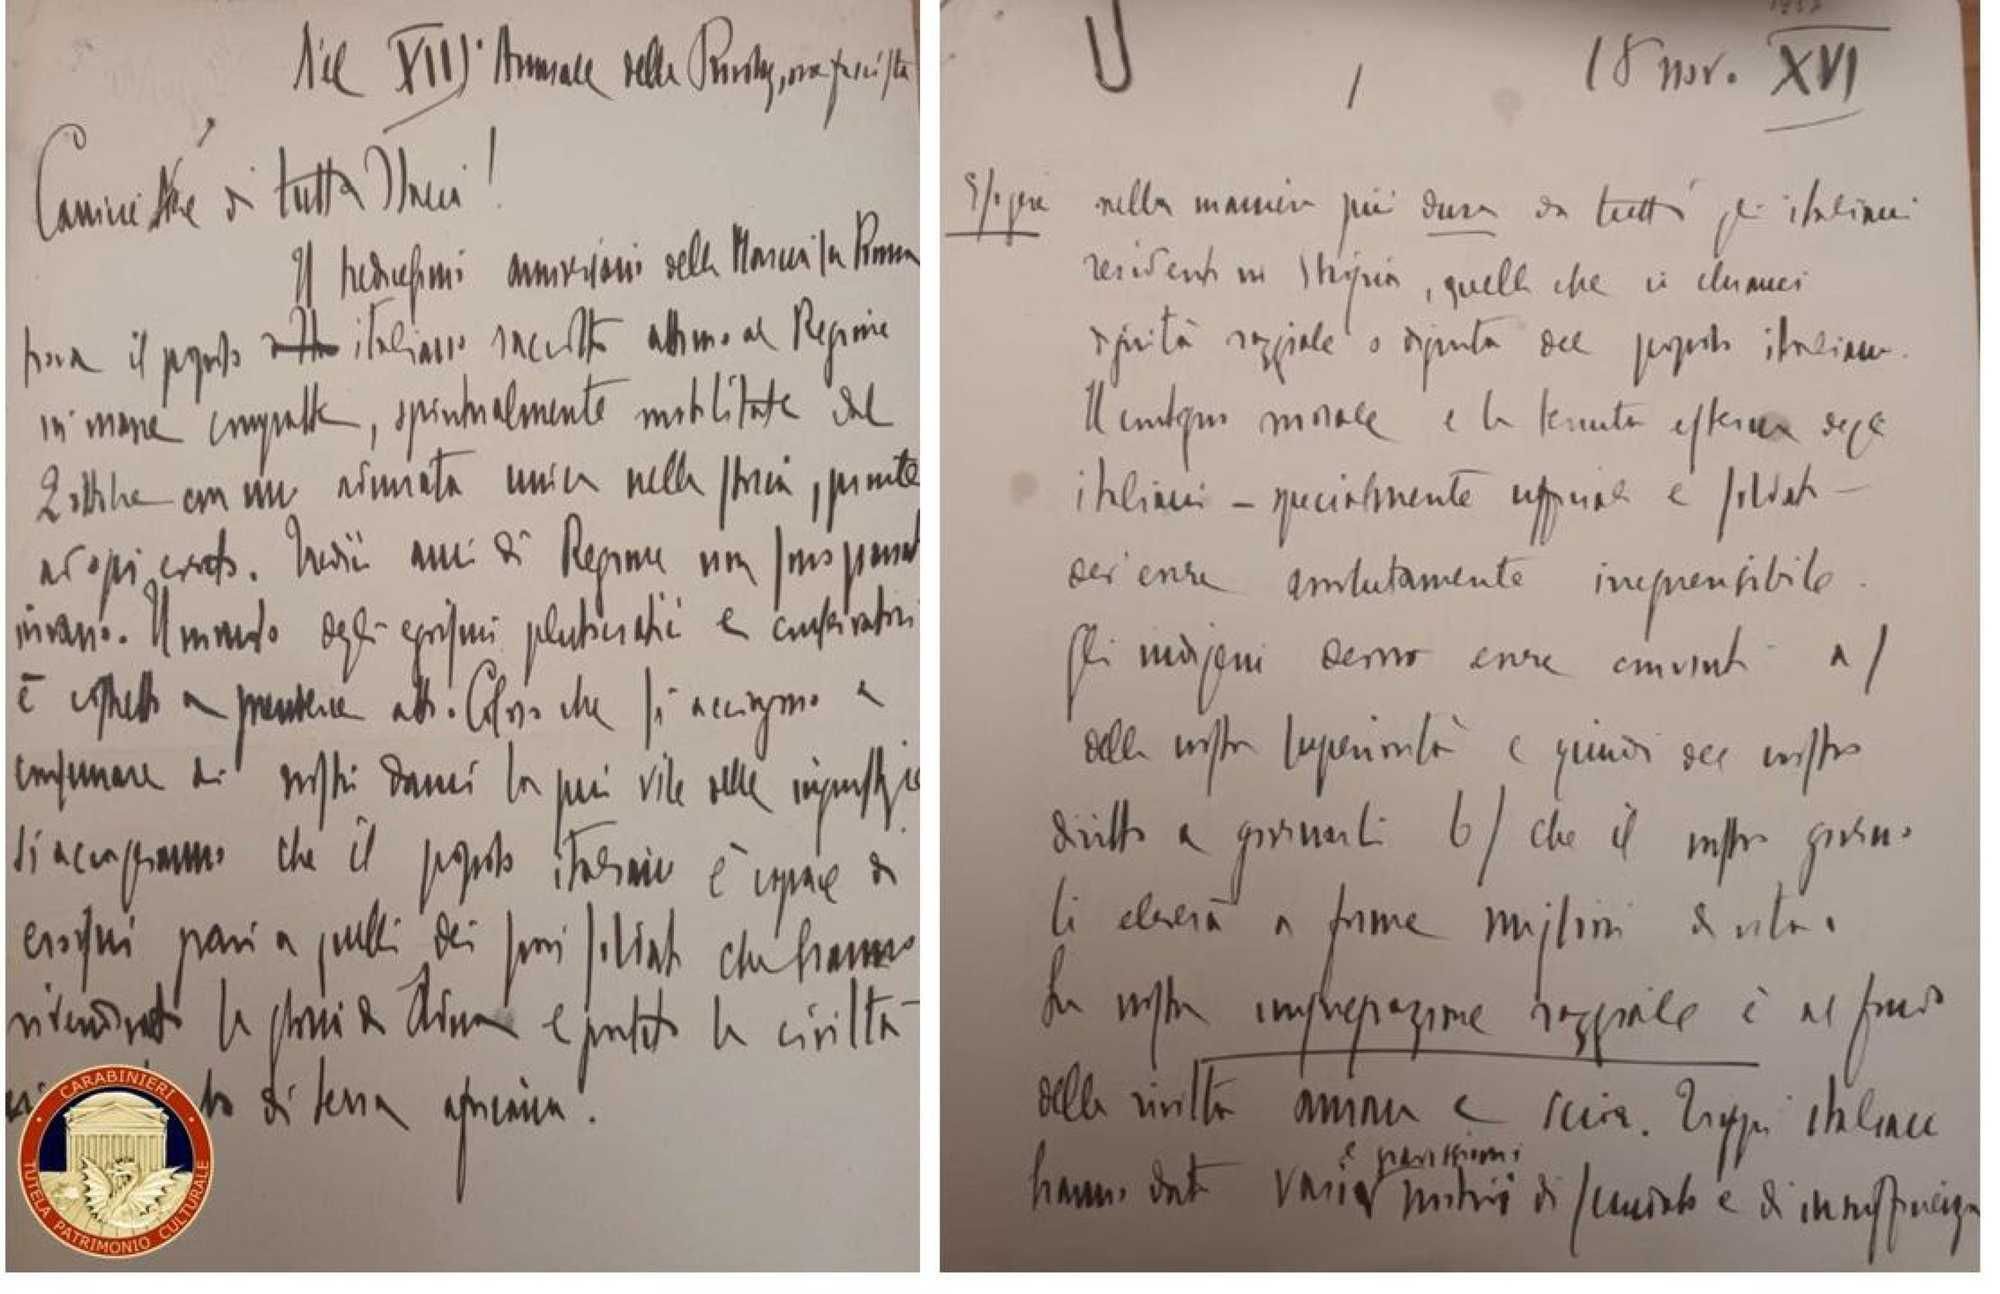 Nel XIII° Annuale della Rivoluz. ora fascista
Camicie Nere di tutta Italia!
Il tredicesimo anniversario della Marcia su Roma
trova il popolo italiano raccolto attorno al Regime
in masse compatte, spiritualmente mobilitate dal
2 ottobre con una adunata unica nella storia, pronte
ad ogni evento. Tredici anni di Regime non sono passati
invano. Il mondo degli egoismi plutocratici e conservatori
è costretto a prenderne atto. Coloro che si accingono a
consumare ai nostri danni la più vile delle ingiustizie
si accorgeranno che il popolo italiano è capace di
eroismi pari a quelli dei suoi soldati che hanno
rivendicato la gloria di Adua e portato la civiltà
di terra africana.
CARABINIERI
TUTELA PATRIMONIO CULTURALE
1937
1 18 nov. XVI
Esigere nella maniera più dura da tutti gli italiani
residenti in Etiopia, quella che si chiami
dignità razziale o dignità del popolo italiano.
Il contegno morale e la tenuta esterna degli
italiani – specialmente ufficiali e soldati –
dev'essere assolutamente irreprensibile.
Gli indigeni devono essere convinti a/
della nostra superiorità e quindi del nostro
diritto a governarli b/ che il nostro governo
li eleverà a forme migliori di vita.
La nostra impreparazione razziale è al fondo
della rivolta amara e scioa. Troppi italiani
hanno dato vari e gravissimi motivi di scandalo e di insufficienza